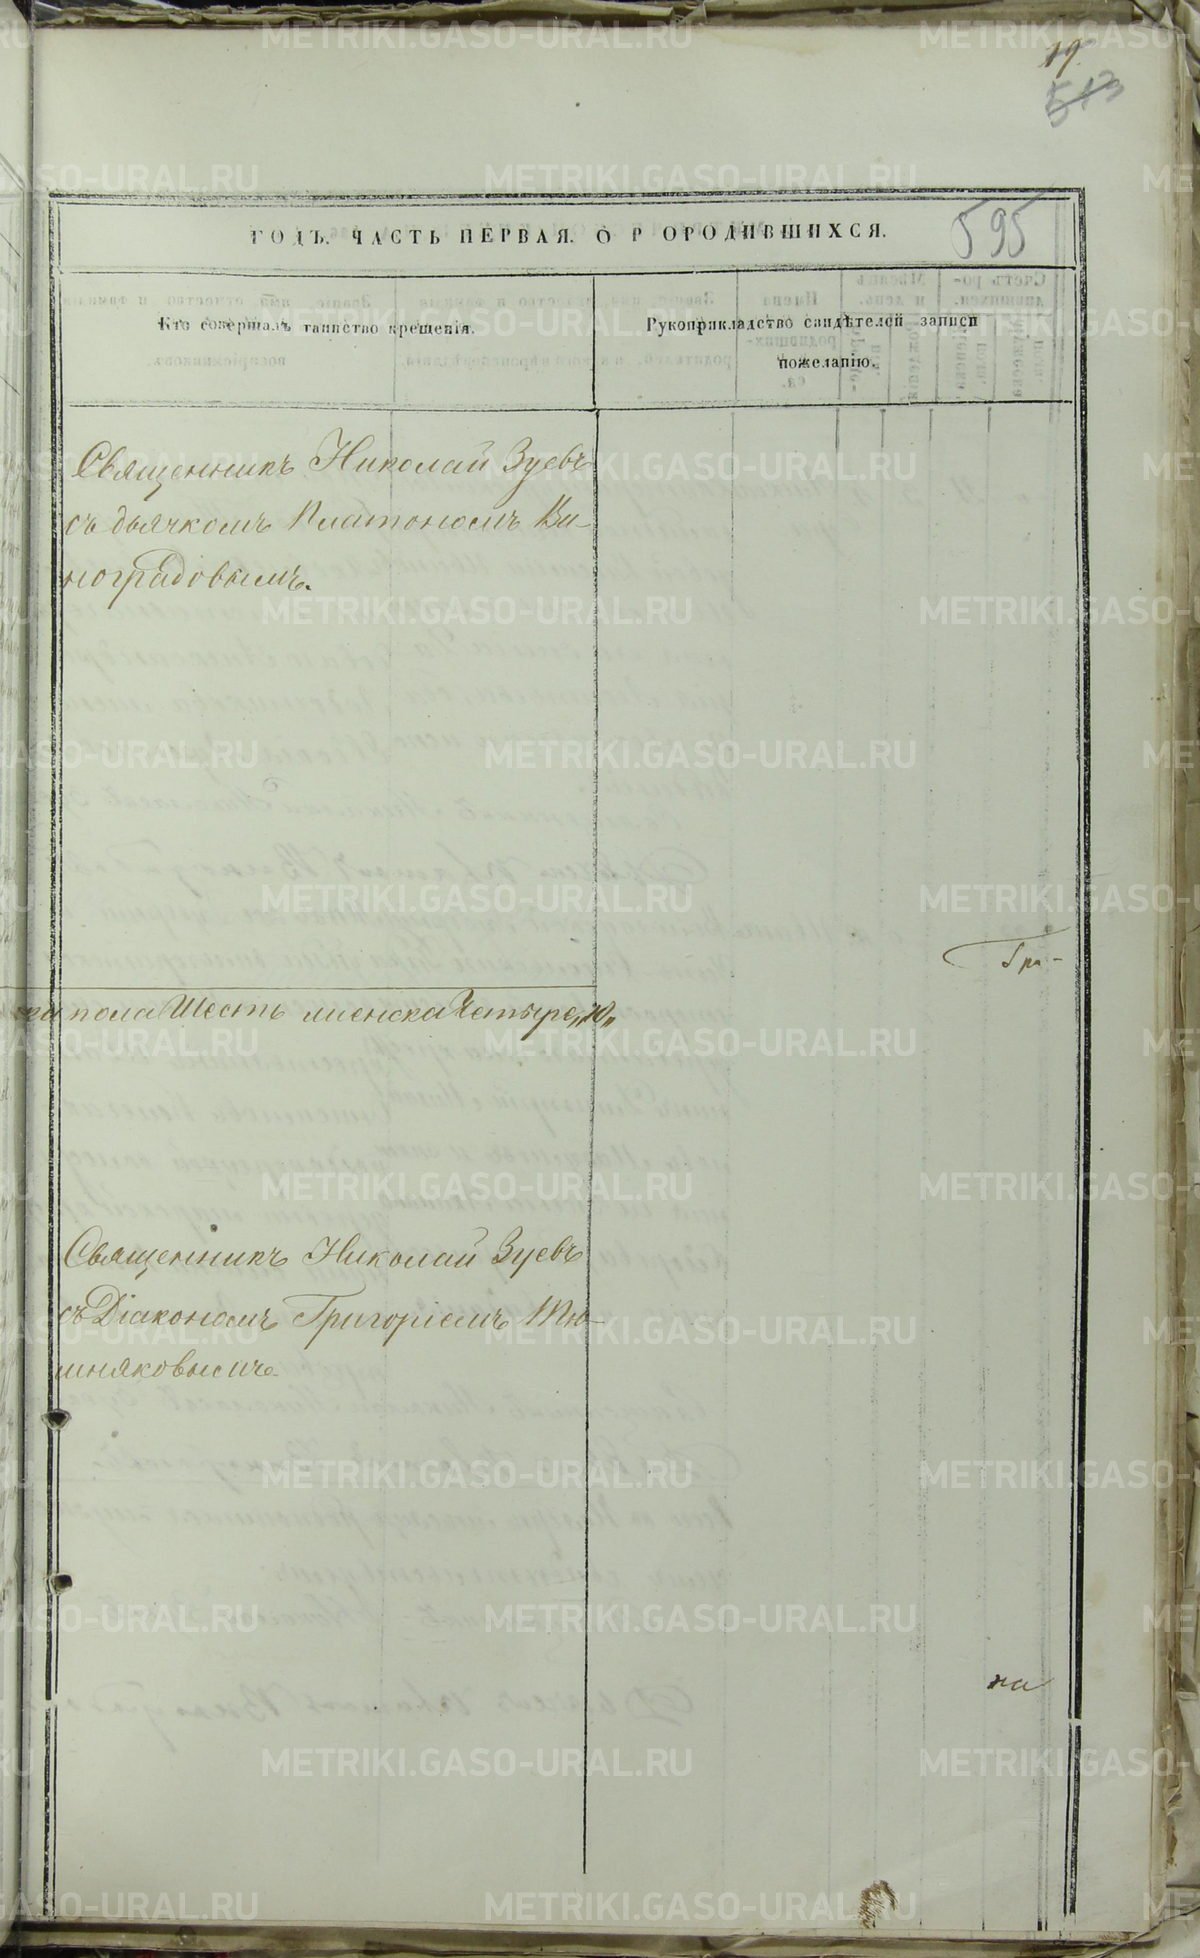 19.
513
595
ГОДЪ. ЧАСТЬ ПЕРВАЯ. О РОРОДИВШИХСЯ.
Кто совершалъ таинство крещенія.
Рукоприкладство свидѣтелей записи
пожеланію.
Священникъ Николай Зуевъ
съ дьячкомъ Платономъ Ви-
ноградовымъ.
Гри-
ка пола Шесть женска Четыре „10„
Священникъ Николай Зуевъ
съ Діакономъ Григоріемъ Тю-
шняковымъ
на
METRIKI.GASO-URAL.RU